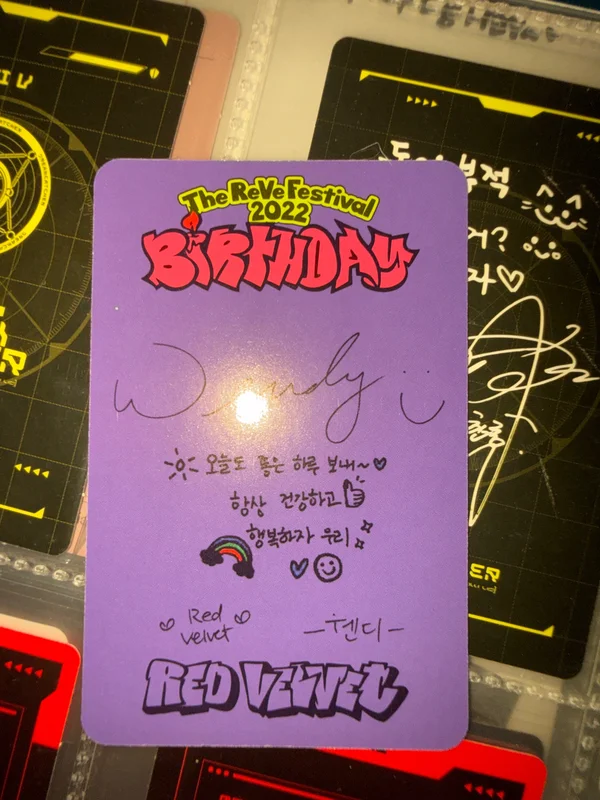 The ReVe Festival
2022
BiRTHDAY
Wendy
오늘도 좋은 하루 보내~♡
항상 건강하고
행복하자 우리
Red
Velvet
-웬디-
RED VELVET
부적
거?
자♡